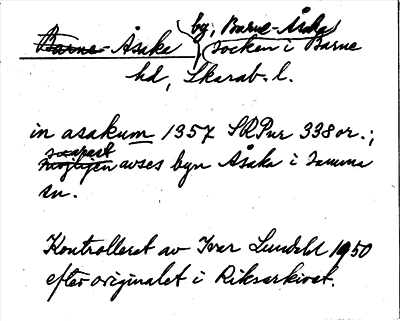 by, Barne-Åsaka
Barne-Åsaka socken i Barne
hd, Skarab. l.
in asakum 1357 SRPnr 338 or.;
snarast
möjligen avses byn Åsaka i samma
sn.
Kontrollerat av Ivar Lundahl 1950
efter originalet i Riksarkivet.